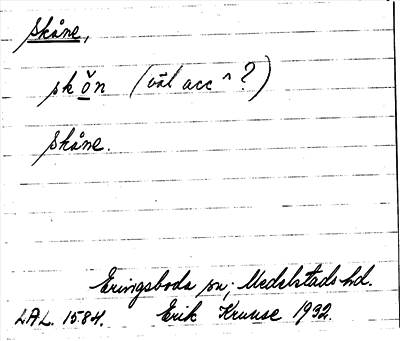 Skåne,
skǒ̲n (väl acc ^ ?)
Skåne.
Eringsboda sn; Medelstads hd.
LAL. 1584. Erik Kruuse 1932.